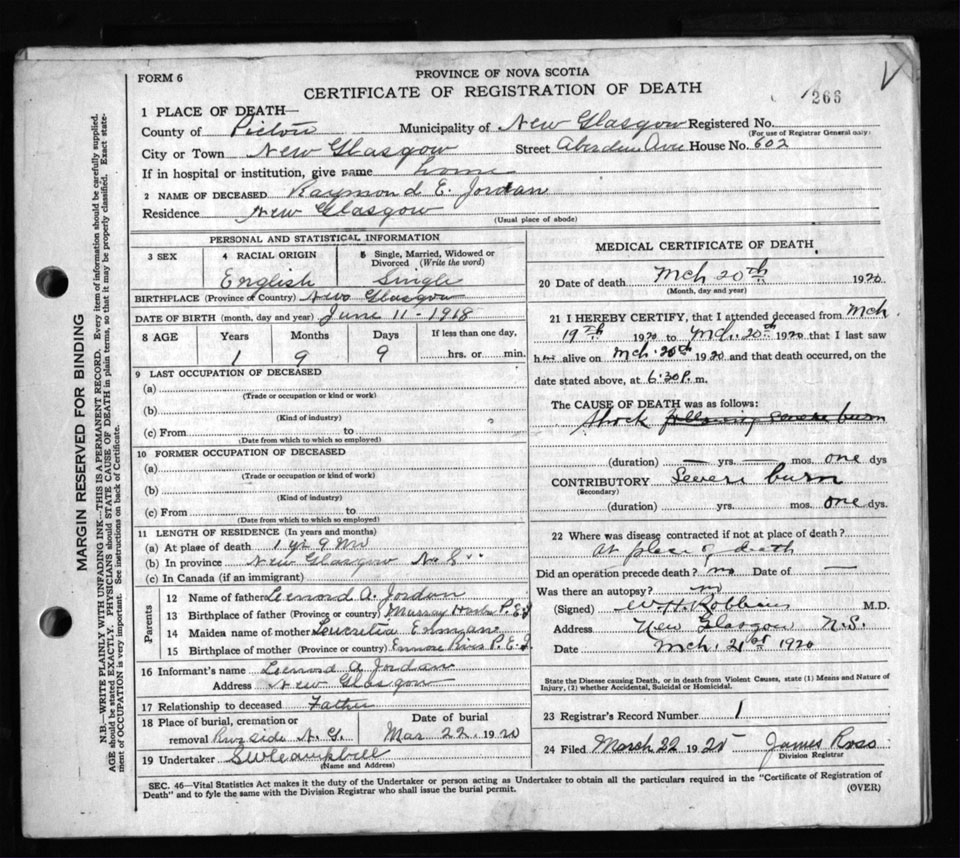 FORM 6
PROVINCE OF NOVA SCOTIA
CERTIFICATE OF REGISTRATION OF DEATH
266
1 PLACE OF DEATH—
County of Pictou Municipality of New Glasgow Registered No.
(For use of Registrar General only)
City or Town New Glasgow Street Aberdeen Ave House No. 602
If in hospital or institution, give name home
2 NAME OF DECEASED Raymond E. Jordan
Residence New Glasgow
(Usual place of abode)
PERSONAL AND STATISTICAL INFORMATION
3 SEX
4 RACIAL ORIGIN
English
5 Single, Married, Widowed or Divorced (Write the word)
Single
BIRTHPLACE (Province or Country) New Glasgow
DATE OF BIRTH (month, day and year) June 11 - 1918
8 AGE Years Months Days If less than one day,
1 9 9 hrs. or min.
9 LAST OCCUPATION OF DECEASED
(a)
(Trade or occupation or kind or work)
(b)
(Kind of industry)
(c) From to
(Date from which to which so employed)
10 FORMER OCCUPATION OF DECEASED
(a)
(Trade or occupation or kind of work)
(b)
(Kind of industry)
(c) From to
(Date from which to which so employed)
11 LENGTH OF RESIDENCE (In years and months)
(a) At place of death 1 yr 9 mo
(b) In province New Glasgow N. S.
(c) In Canada (if an immigrant)
Parents
12 Name of father Leonord A. Jordan
13 Birthplace of father (Province or country) Murray P. E. I
14 Maiden name of mother Leucretia
15 Birthplace of mother (Province or country) P. E. I.
16 Informant's name Leonord A Jordan
Address New Glasgow
17 Relationship to deceased Father
18 Place of burial, cremation or removal Riverside N. G.
Date of burial
Mar 22, 1920
19 Undertaker
(Name and Address)
MEDICAL CERTIFICATE OF DEATH
20 Date of death Mch 20th 1920
(Month, day and year)
21 I HEREBY CERTIFY, that I attended deceased from Mch
19th 1920 to Mch. 20th 1920 that I last saw
him alive on Mch. 20th 1920 and that death occurred, on the
date stated above, at 6.30 P. m.
The CAUSE OF DEATH was as follows:
Shock following severe burn
(duration) — yrs. — mos. one dys
CONTRIBUTORY Severe burn
(Secondary)
(duration) yrs. mos. one dys.
22 Where was disease contracted if not at place of death?
At place of death
Did an operation precede death? no Date of —
Was there an autopsy? no
(Signed) W. H. Robbins M.D.
Address New Glasgow N.S.
Date Mch. 21st 1920
State the Disease causing Death, or in death from Violent Causes, state (1) Means and Nature of
Injury, (2) whether Accidental, Suicidal or Homicidal.
23 Registrar's Record Number 1
24 Filed March 22 1920 James Ross
Division Registrar
SEC. 46—Vital Statistics Act makes it the duty of the Undertaker or person acting as Undertaker to obtain all the particulars required in the "Certificate of Registration of
Death" and to fyle the same with the Division Registrar who shall issue the burial permit.
(OVER)
MARGIN RESERVED FOR BINDING
N.B.—WRITE PLAINLY WITH UNFADING INK—THIS IS A PERMANENT RECORD. Every item of information should be carefully supplied.
AGE should be stated EXACTLY. PHYSICIANS should STATE CAUSE OF DEATH in plain terms, so that it may be properly classified. Exact statement of OCCUPATION is very important. See instructions on back of Certificate.